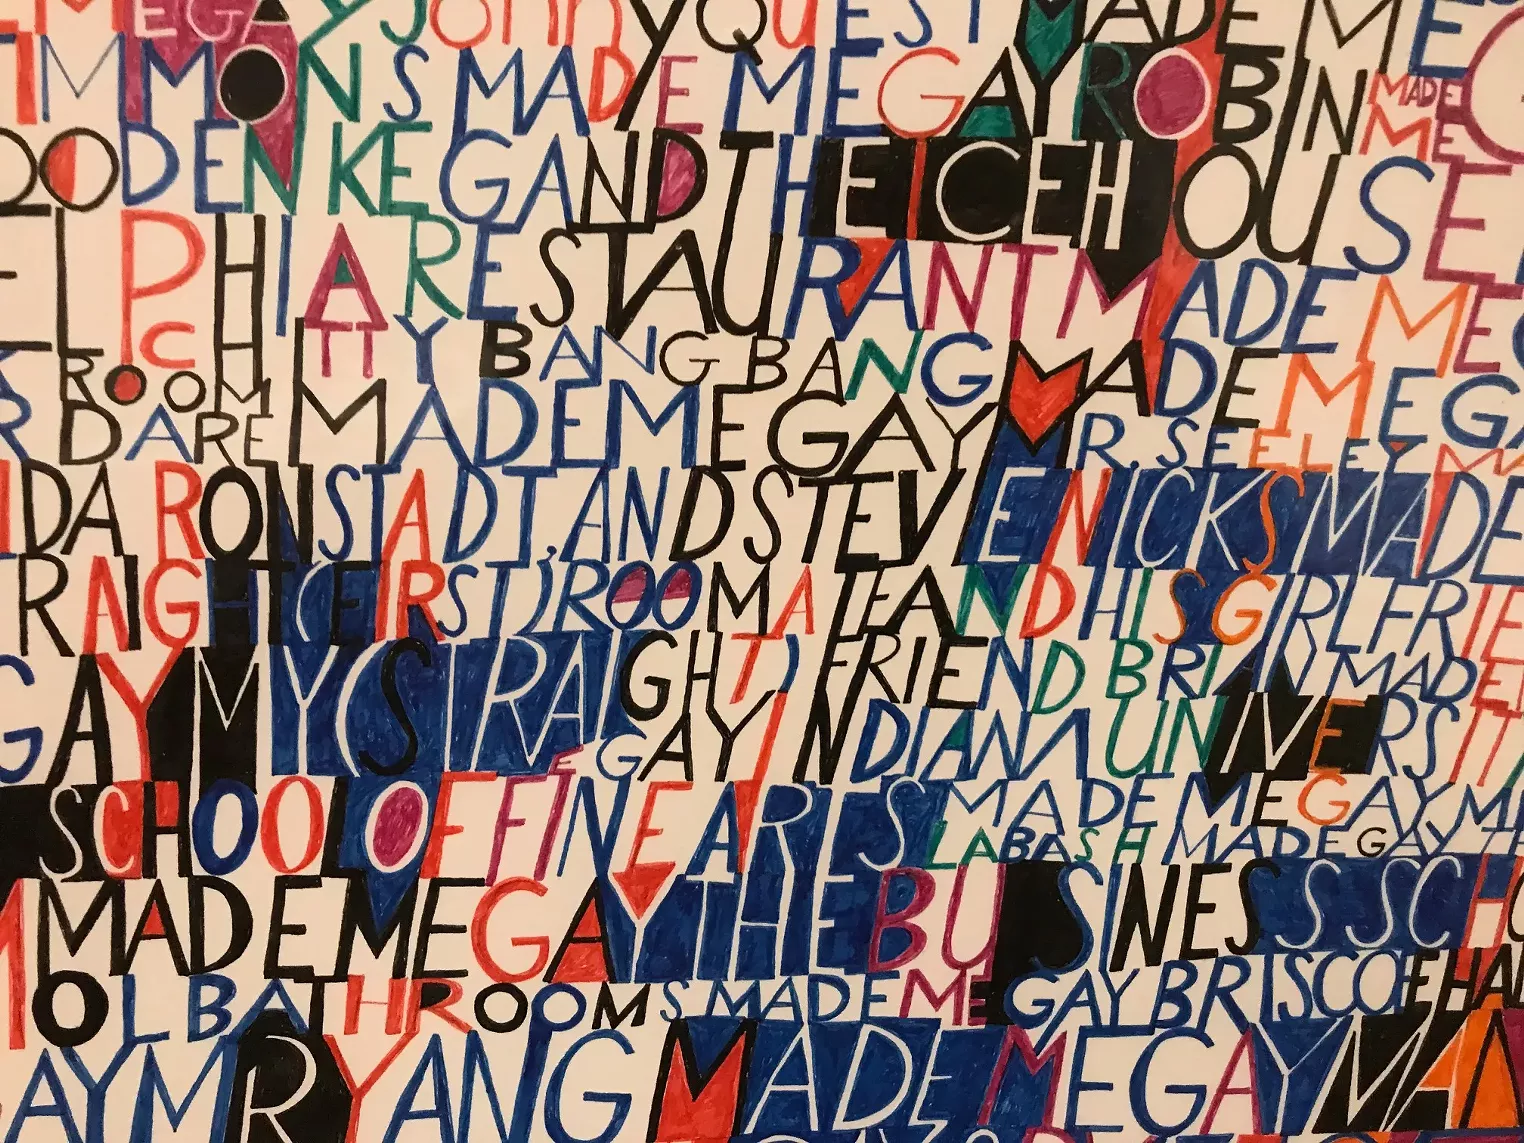 MEGAY JOHNNY QUEST MADE ME
TIMMONS MADE ME GAY ROBIN MADE ME
WOODEN KEG AND THE ICEHOUSE
ELPHIA RESTAURANT MADE ME
PC HITTY BANG BANG MADE ME GA
R ROOM DARE MADE ME GAY MR. SEELEY MA
DA RONSTADT, AND STEVENICKS MADE
RAIGHT (FIRST) ROOMATE AND HIS GIRLFRIE
GAY MY (STRAIGHT) FRIEND BRIAN MADE
GAY INDIANA UNIVERSIT
SCHOOL OF FINE ARTS MADE ME GAY MR
LABASH MADE GAY THE
MADE ME GAY THE BUSINESS SCHO
OL BATHROOMS MADE ME GAY BRISCOE HAL
AY MR YANG MADE ME GAY MAN